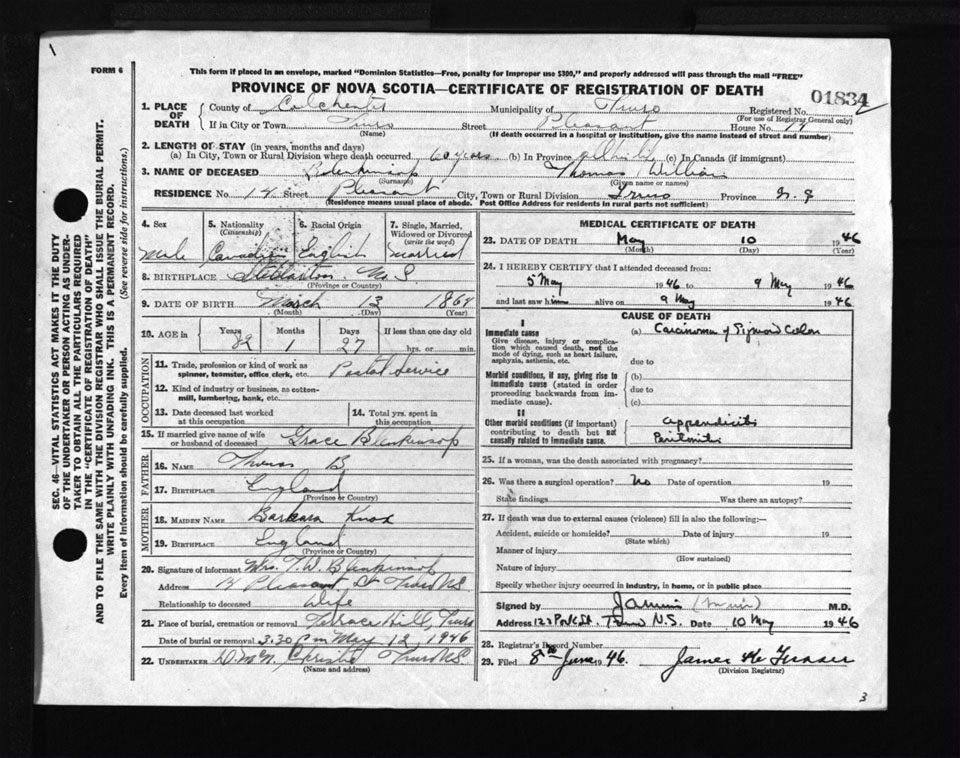 1
FORM 6
This form if placed in an envelope, marked "Dominion Statistics—Free, penalty for improper use $300," and properly addressed will pass through the mail "FREE"
PROVINCE OF NOVA SCOTIA—CERTIFICATE OF REGISTRATION OF DEATH
01834
1. PLACE OF DEATH
County of Colchester Municipality of Truro Registered No.
(For use of Registrar General only)
If in City or Town Truro Street Pleasant House No. 14
(Name) (If death occurred in a hospital or institution, give the name instead of street and number)
2. LENGTH OF STAY (in years, months and days)
(a) In City, Town or Rural Division where death occurred 60 years (b) In Province all his life (c) In Canada (if immigrant)
3. NAME OF DECEASED Blenkinsop Thomas William
(Surname) (Given name or names)
RESIDENCE No. 14 Street Pleasant City, Town or Rural Division Truro Province N.S
(Residence means usual place of abode. Post Office Address for residents in rural parts not sufficient)
4. Sex
Male
5. Nationality (Citizenship)
Canadian
6. Racial Origin
English
7. Single, Married, Widowed or Divorced (write the word)
Married
8. BIRTHPLACE Stellarton N.S
(Province or Country)
9. DATE OF BIRTH March 13 1864
(Month) (Day) (Year)
10. AGE in Years Months Days If less than one day old
82 1 27 hrs. or min.
OCCUPATION
11. Trade, profession or kind of work as spinner, teamster, office clerk, etc. Postal Service
12. Kind of industry or business, as cotton-mill, lumbering, bank, etc.
13. Date deceased last worked at this occupation
14. Total yrs. spent in this occupation
15. If married give name of wife or husband of deceased Grace Blenkinsop
FATHER
16. NAME Thomas B
17. BIRTHPLACE England
(Province or Country)
MOTHER
18. MAIDEN NAME Barbara Knox
19. BIRTHPLACE England
(Province or Country)
20. Signature of informant Mrs. T. W. Blenkinsop
Address 14 Pleasant St Truro N.S
Relationship to deceased Wife
21. Place of burial, cremation or removal Terrace Hill, Truro
Date of burial or removal 3.30 P.m May 12 1946
22. UNDERTAKER Christie Truro N.S
(Name and address)
MEDICAL CERTIFICATE OF DEATH
23. DATE OF DEATH May 10 1946
(Month) (Day) (Year)
24. I HEREBY CERTIFY that I attended deceased from:
5 May 1946 to 9 May 1946
and last saw him alive on 9 May 1946
CAUSE OF DEATH
I
Immediate cause (a) Carcinoma of Sigmoid Colon
Give disease, injury or complication which caused death, not the mode of dying, such as heart failure, asphyxia, asthenia, etc.
due to
Morbid conditions, if any, giving rise to immediate cause (stated in order proceeding backwards from immediate cause).
(b)
due to
(c)
II
Other morbid conditions (if important) contributing to death but not causally related to immediate cause.
Appendicitis
Peritonitis
25. If a woman, was the death associated with pregnancy?
26. Was there a surgical operation? No Date of operation 19
State findings Was there an autopsy?
27. If death was due to external causes (violence) fill in also the following:—
Accident, suicide or homicide? Date of injury 19
(State which)
Manner of injury
(How sustained)
Nature of injury
Specify whether injury occurred in industry, in home, or in public place
Signed by M.D.
Address 122 Park St. Truro N.S. Date 10 May 1946
28. Registrar's Record Number
29. Filed 8th June 1946. James
(Division Registrar)
3
SEC. 46—VITAL STATISTICS ACT MAKES IT THE DUTY
OF THE UNDERTAKER OR PERSON ACTING AS UNDER-
TAKER TO OBTAIN ALL THE PARTICULARS REQUIRED
IN THE "CERTIFICATE OF REGISTRATION OF DEATH"
AND TO FILE THE SAME WITH THE DIVISION REGISTRAR WHO SHALL ISSUE THE BURIAL PERMIT.
WRITE PLAINLY WITH UNFADING INK. THIS IS A PERMANENT RECORD.
Every item of information should be carefully supplied. (See reverse side for instructions.)